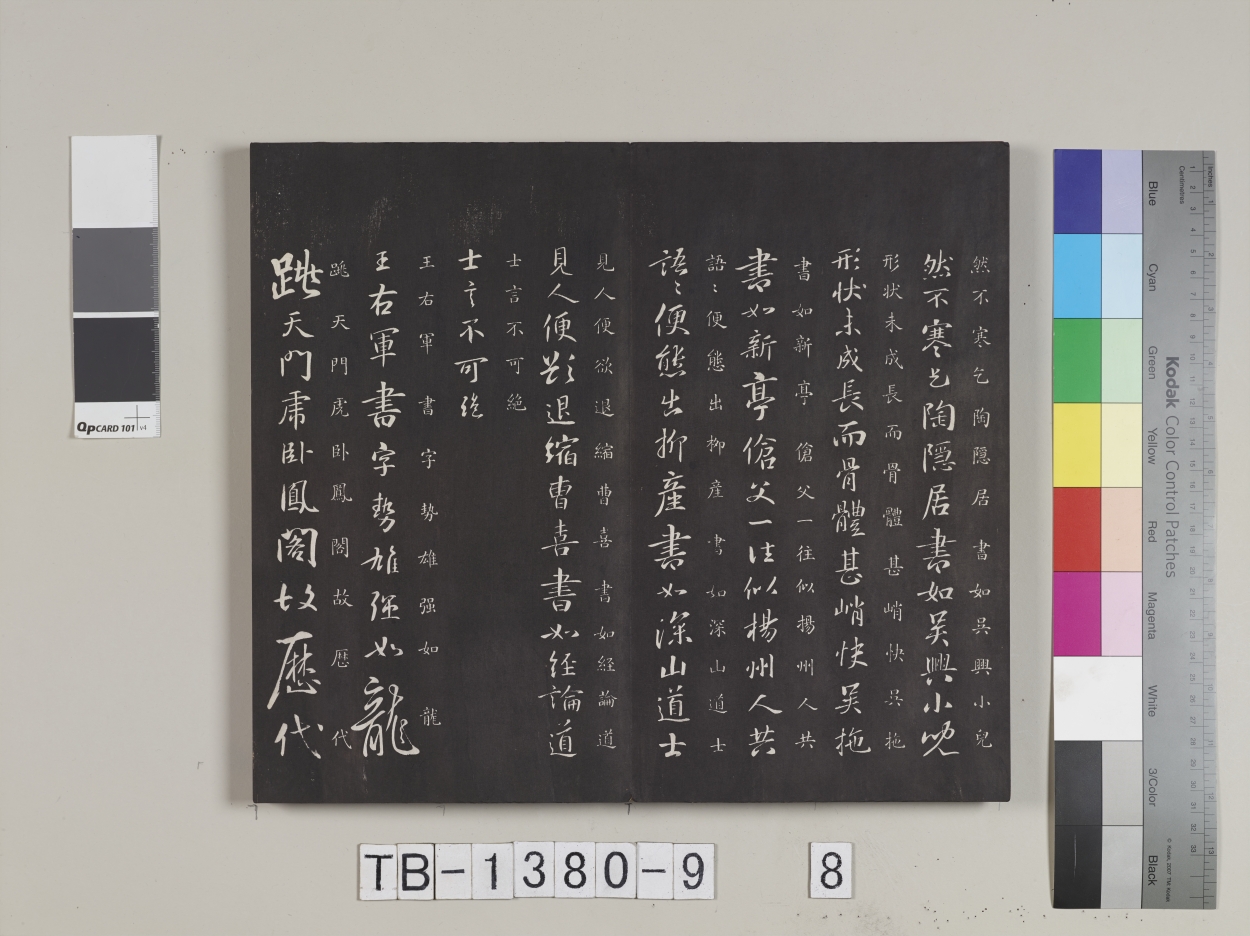 然不寒乞陶隱居書如吳興小兒
然不寒乞陶隐居書如吳興小兒
形狀未成長而骨體甚峭快吳拖
形狀未成長而骨體甚峭快吳拖
書如新亭傖父一往似揚州人共
書如新亭傖父一往似楊州人共
語〻便態出柳産書如深山道士
語〻便態出柳産書如深山道士
見人便欲退縮曹喜書如経論道
見人便欲退縮曹喜書如経論道
士言不可絕
士言不可絕
王右軍書字势雄强如龍
王右軍書字势雄强如龍
跳天門虎卧鳳閣故歷代
跳天門虎卧鳳閣故歷代
QPCARD 101 v4
Blue
Cyan
Green
Yellow
Red
Magenta
White
3/Color
Black
Kodak Color Control Patches
Inches
Centimetres
© Kodak, 2007 TM: Kodak
TB-1380-9 8